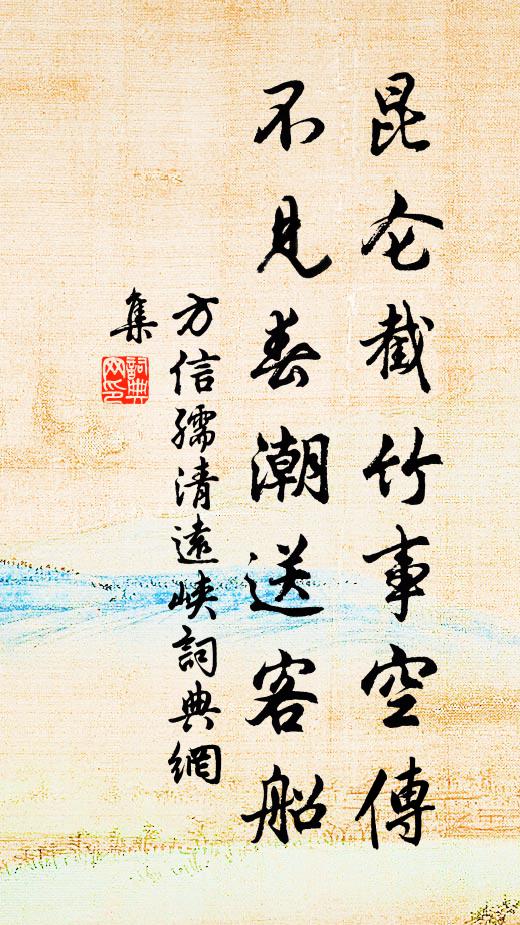 昆仑截竹事空傳
不見春潮送客船
方信孺清遠峡詞典網
集
詞典网印